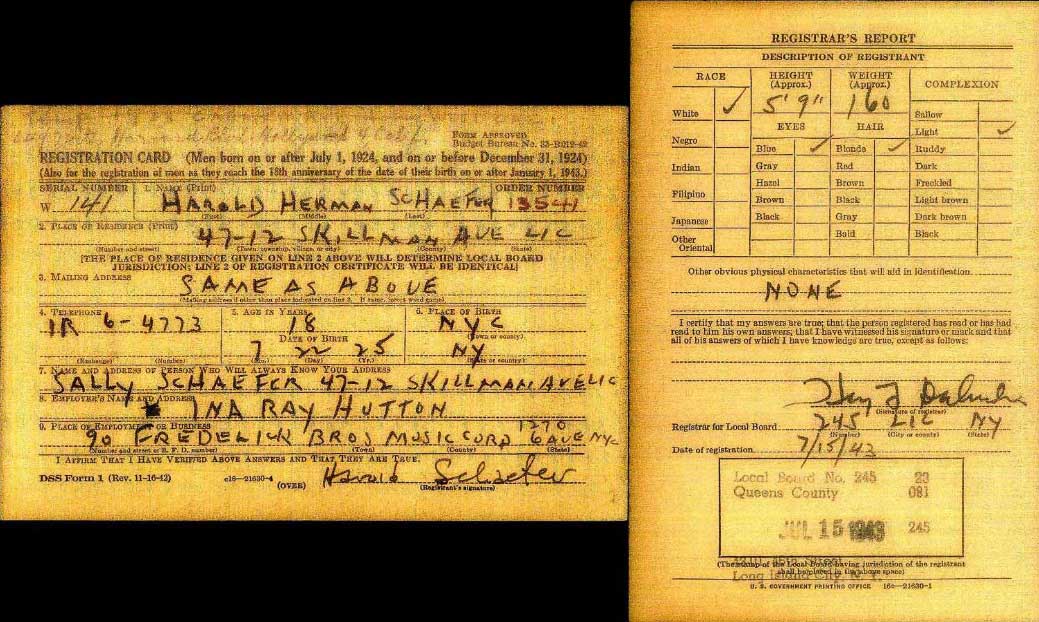 Hollywood Calif.
FORM APPROVED
Budget Bureau No. 33-R012-42
REGISTRATION CARD (Men born on or after July 1, 1924, and on or before December 31, 1924)
(Also for the registration of men as they reach the 18th anniversary of the date of their birth on or after January 1, 1943.)
SERIAL NUMBER 1. NAME (Print) ORDER NUMBER
W 141 HAROLD HERMAN SCHAEFER 13541
(First) (Middle) (Last)
2. PLACE OF RESIDENCE (Print)
47-12 SKILLMAN AVE LIC
(Number and street) (Town, township, village, or city) (County) (State)
[THE PLACE OF RESIDENCE GIVEN ON LINE 2 ABOVE WILL DETERMINE LOCAL BOARD
JURISDICTION; LINE 2 OF REGISTRATION CERTIFICATE WILL BE IDENTICAL]
3. MAILING ADDRESS
SAME AS ABOVE
(Mailing address if other than place indicated on line 2. If same, insert word same)
4. TELEPHONE 5. AGE IN YEARS 6. PLACE OF BIRTH
IR 6-4773 18 NYC
DATE OF BIRTH (Town or county)
7 22 25 NY
(Exchange) (Number) (Mo.) (Day) (Yr.) (State or country)
7. NAME AND ADDRESS OF PERSON WHO WILL ALWAYS KNOW YOUR ADDRESS
SALLY SCHAEFER 47-12 SKILLMAN AVE LIC
8. EMPLOYER'S NAME AND ADDRESS
INA RAY HUTTON
9. PLACE OF EMPLOYMENT OR BUSINESS 1270
FREDERICK BROS MUSIC CORP 6 AVE NYC
(Number and street or R. F. D. number) (Town) (County) (State)
I AFFIRM THAT I HAVE VERIFIED ABOVE ANSWERS AND THAT THEY ARE TRUE.
DSS Form 1 (Rev. 11-16-42) (OVER) Harold Schaefer
(Registrant's signature)
REGISTRAR'S REPORT
DESCRIPTION OF REGISTRANT
RACE HEIGHT (Approx.) WEIGHT (Approx.) COMPLEXION
White ✓ 5' 9" 160 Sallow
EYES HAIR Light ✓
Negro Blue ✓ Blonde ✓ Ruddy
Indian Gray Red Dark
Hazel Brown Freckled
Filipino Brown Black Light brown
Japanese Black Gray Dark brown
Other Oriental Bald Black
Other obvious physical characteristics that will aid in identification.
NONE
I certify that my answers are true; that the person registered has read or has had
read to him his own answers; that I have witnessed his signature or mark and that
all of his answers of which I have knowledge are true, except as follows:
(Signature of registrar)
Registrar for Local Board 245 LIC NY
(Number) (City or county) (State)
Date of registration 7/15/43
Local Board No. 245 23
Queens County 081
JUL 15 1943 245
(The stamp of the Local Board having jurisdiction of the registrant
shall be placed in the above space)
Long Island City, N. Y.
U. S. GOVERNMENT PRINTING OFFICE 16—21630-1